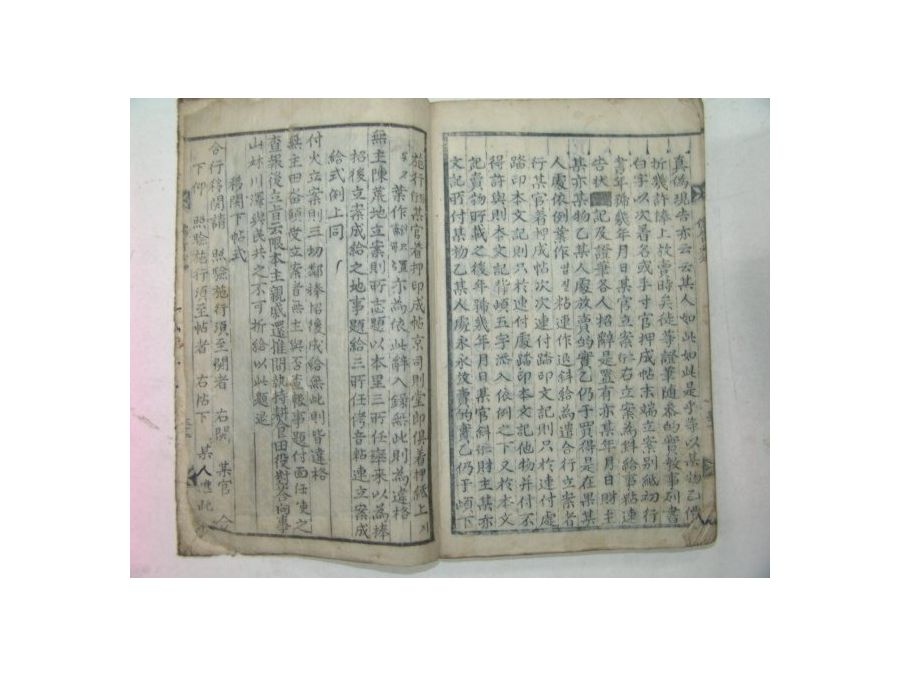 真偽現告亦云云某人如此如此是乎等以某物乙價
折幾許捧上放賣時矣徒等證筆隨參的實敀事列書
白字以次着名或手寸官押成帖末端立案別紙初行
書年號幾年月日某官立案行右立案為斜給事粘連
告状 記及證筆各人招辭是置有亦某年月日財主
某亦某物乙某人處放賣的實乙仍于買得是在果某
人處依例葉作粘連作退斜給為遣合行立案者
行某官着押成帖次次連付踏印文記則只於連付處
踏印本文記則只於連付處踏印本文記他物并付不
得許與則本文記背頉五字添入依例之下又於本文
記賣物所載之後年號幾年月日某官斜作財主某亦
文記所付某物乙某人處永永放賣的實乙仍于頉下
施行行某官着押印成帖京司則堂郎俱着押紙上
葉作 亦為依此辭入録無此則為違格
無主陳荒地立案則所志題以本里三所任率来以為捧
招後立案成給之地事題給三所任侤音粘連立案成
給式例上同
付火立案則三切鄰捧招後成給無此則皆違格
無主田畓願受立案者無主與否查報事題付面任使之
查報後立旨云限本主親戚還推間執持耕食田役對答向事
山林川澤與民共之不可折給以此題退
移關下帖式
合行移關請 照驗施行須至關者 右關 某官
下仰 照驗施行須至帖者 右帖下 某人準此